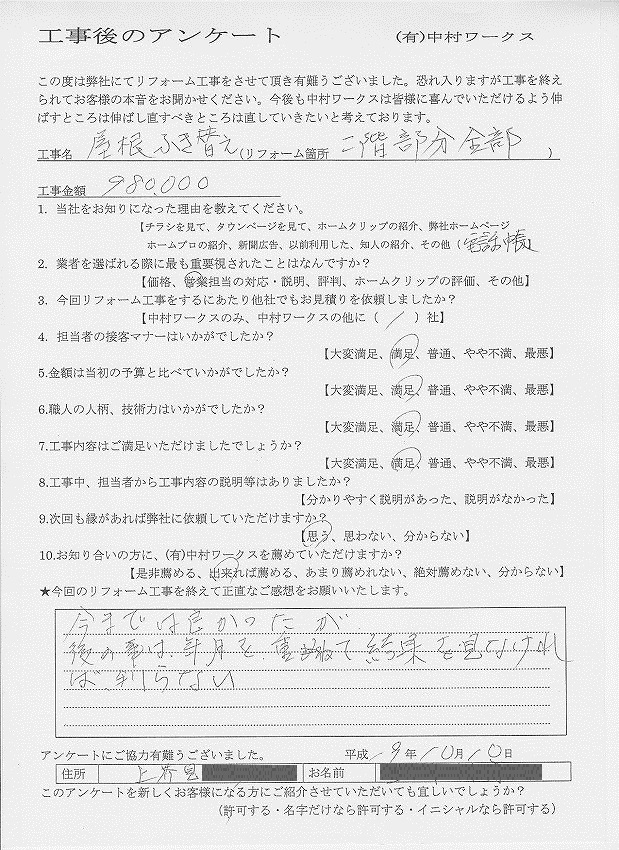 工事後のアンケート　(有)中村ワークス
この度は弊社にてリフォーム工事をさせて頂き有難うございました。恐れ入りますが工事を終え
られてお客様の本音をお聞かせください。今後も中村ワークスは皆様に喜んでいただけるよう伸
ばすところは伸ばし直すべきところは直していきたいと考えております。
工事名　屋根ふき替え(リフォーム箇所　二階部分全部　)
工事金額　980,000
1. 当社をお知りになった理由を教えてください。
【チラシを見て、タウンページを見て、ホームクリップの紹介、弊社ホームページ
ホームプロの紹介、新聞広告、以前利用した、知人の紹介、その他（電話帳
2. 業者を選ばれる際に最も重要視されたことはなんですか？
【価格、営業担当の対応・説明、評判、ホームクリップの評価、その他】
3. 今回リフォーム工事をするにあたり他社でもお見積りを依頼しましたか？
【中村ワークスのみ、中村ワークスの他に（ / ）社】
4. 担当者の接客マナーはいかがでしたか？
【大変満足、満足、普通、やや不満、最悪】
5.金額は当初の予算と比べていかがでしたか？
【大変満足、満足、普通、やや不満、最悪】
6.職人の人柄、技術力はいかがでしたか？
【大変満足、満足、普通、やや不満、最悪】
7.工事内容はご満足いただけましたでしょうか？
【大変満足、満足、普通、やや不満、最悪】
8.工事中、担当者から工事内容の説明等はありましたか？
【分かりやすく説明があった、説明がなかった】
9.次回も縁があれば弊社に依頼していただけますか？
【思う、思わない、分からない】
10.お知り合いの方に、(有)中村ワークスを薦めていただけますか？
【是非薦める、出来れば薦める、あまり薦めれない、絶対薦めない、分からない】
★今回のリフォーム工事を終えて正直なご感想をお願いいたします。
今までは良かったが
後の事は、年月を、重ねて結果を見なけれ
ば、判らない
アンケートにご協力有難うございました。　平成 19年 10月 10日
住所　お名前
このアンケートを新しくお客様になる方にご紹介させていただいても宜しいでしょうか？
（許可する・名字だけなら許可する・イニシャルなら許可する）